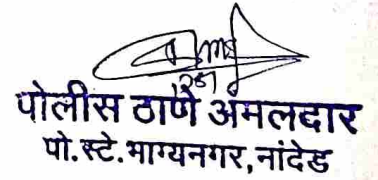 पोलीस ठाणे अंमलदार
पो.स्टे.भाग्यनगर,नांदेड